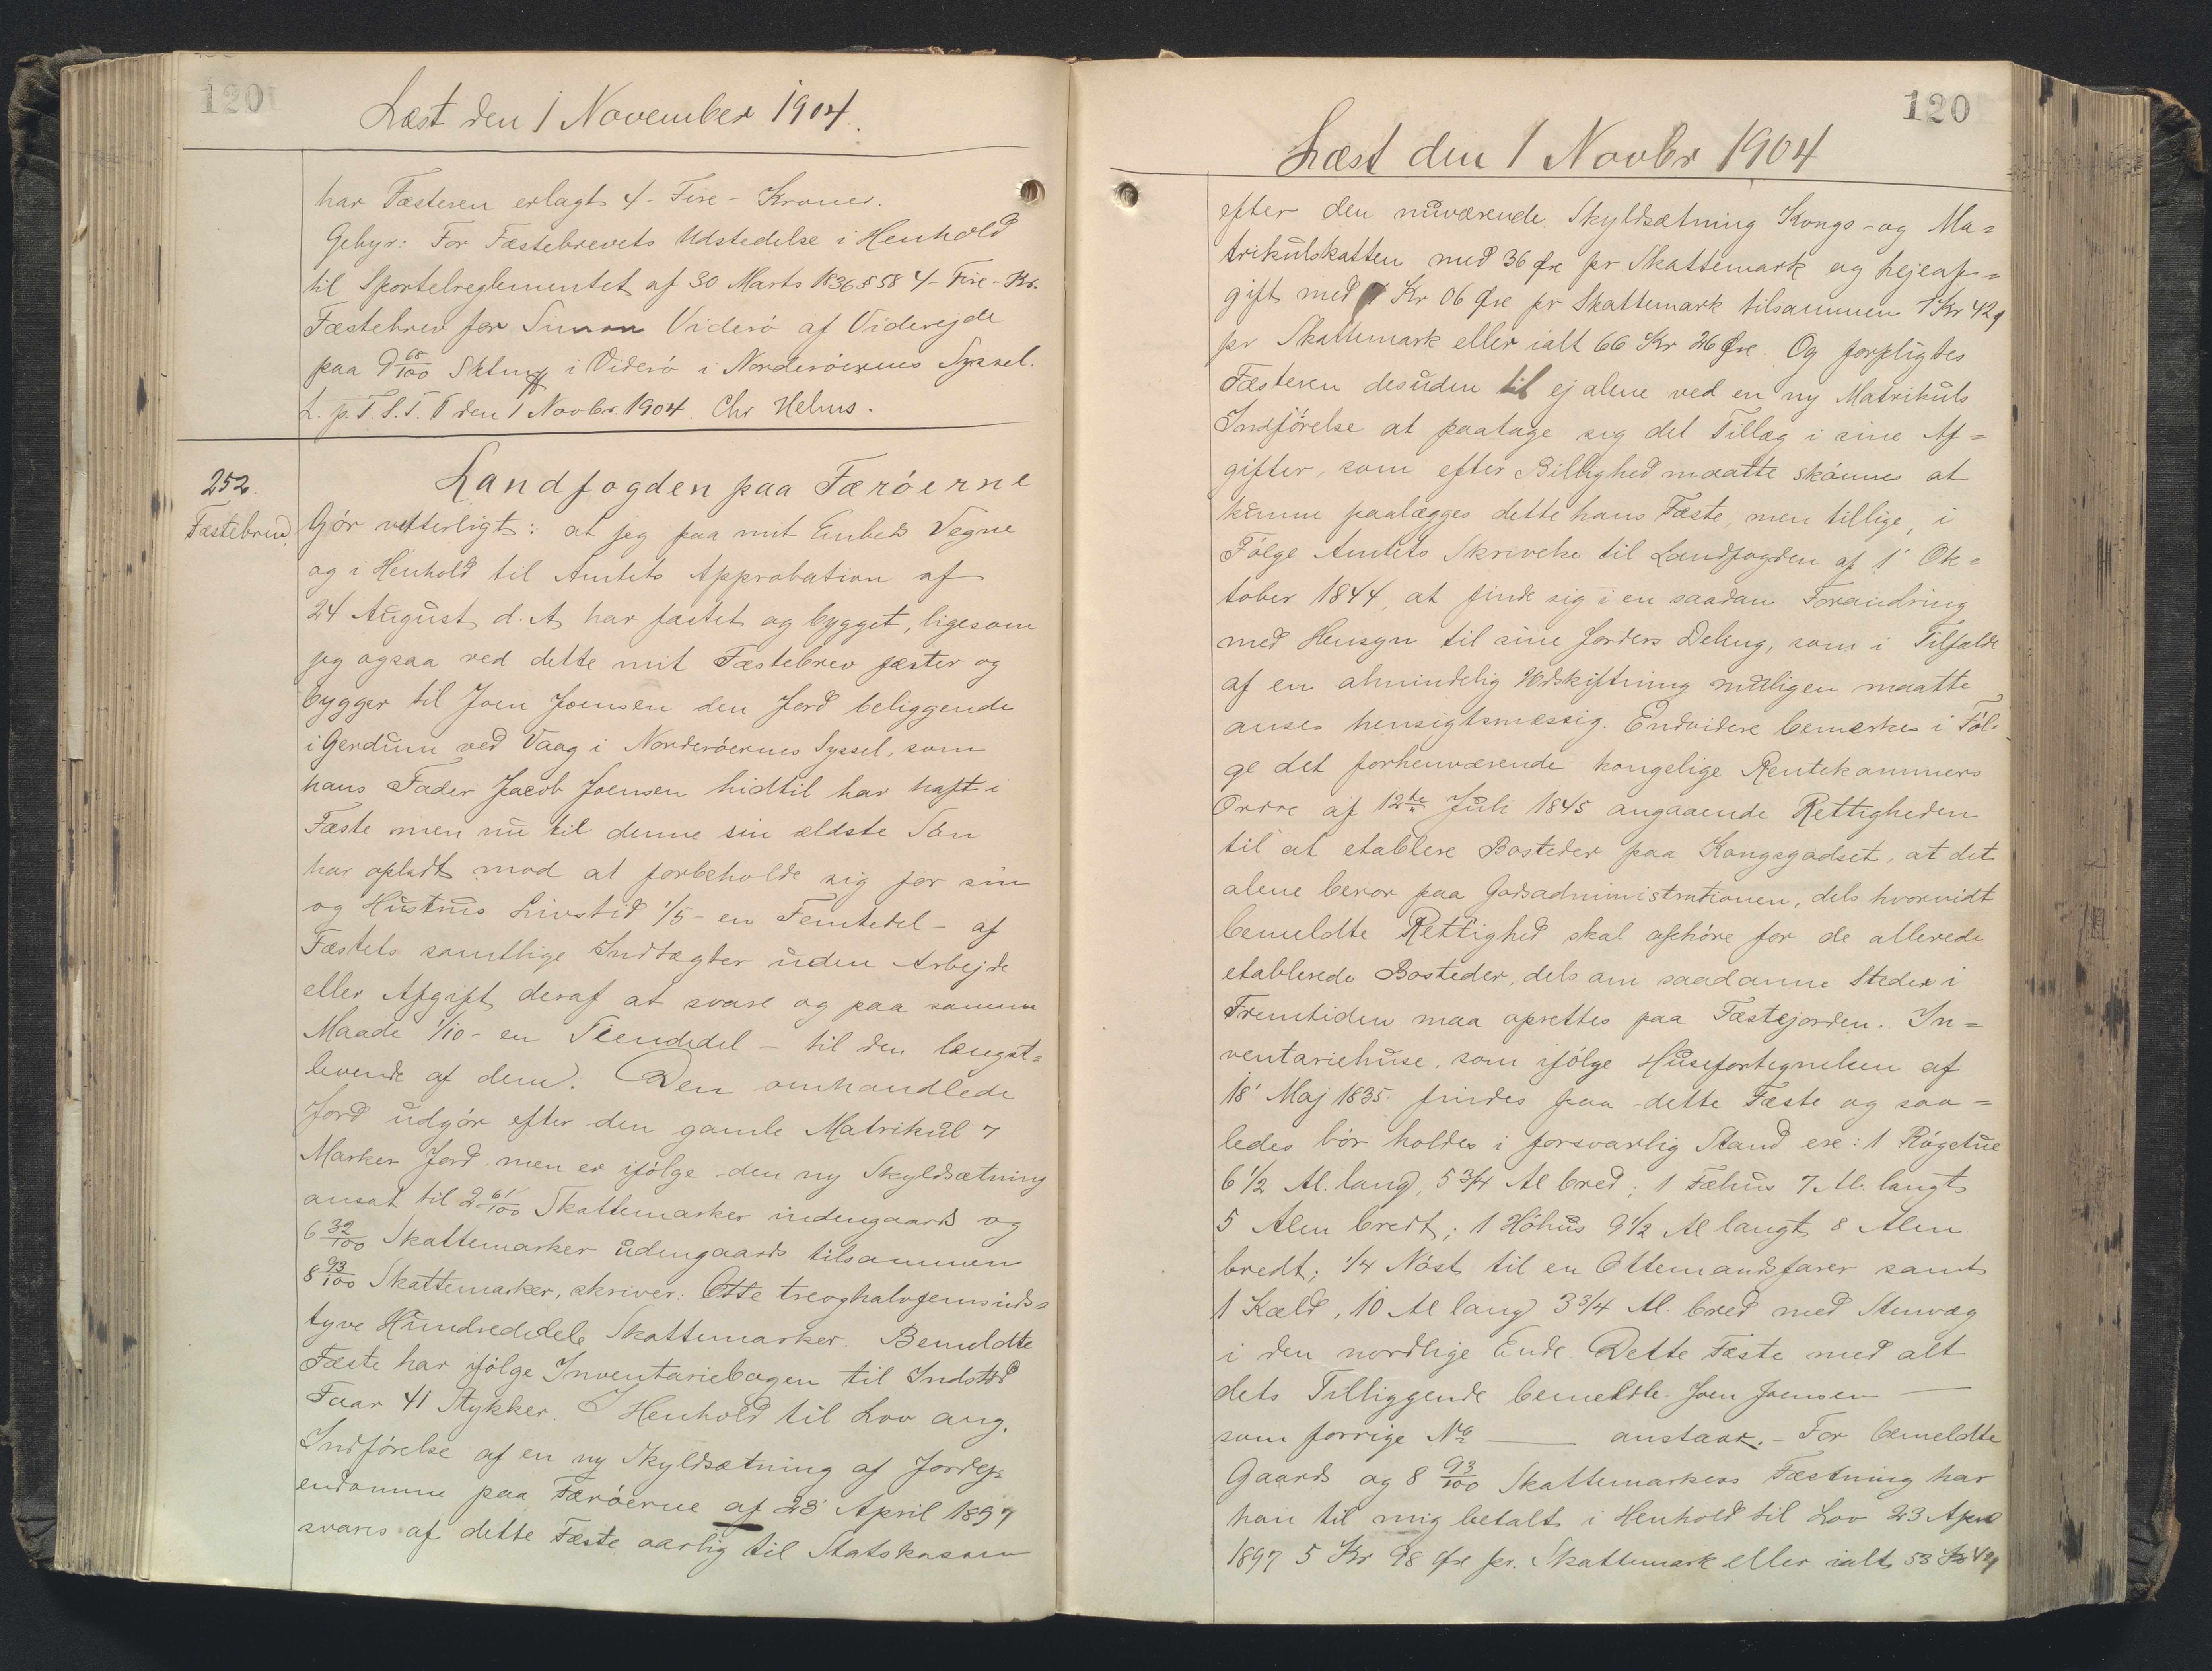 120
Læst den 1 November 1904.
har Fæsteren erlagt 4 - Fire - Kroner.
Gebyr: For Fæstebrevets Udstedelse i Henhold
til Sportelreglementet af 30 Marts 1836 § 58 4 - Fire - Kr.
Fæstebrev for Simon Viderö af Viderejde
paa 9 68/100 Sktmk i Viderö i Norderöernes Syssel.
L. p. T. S. T. T den 1 Novbr. 1904. Chr Helms.
252
Fæstebrev.
Landfogden paa Færöerne
Gör vitterligt: at jeg paa mit Embeds Vegne
og i Henhold til Amtets Approbation af
24 August d. A har fæstet og bygget, ligesom
jeg ogsaa ved dette mit Fæstebrev fæster og
bygger til Joen Joensen den Jord beliggende
i Gerdum ved Vaag i Norderöernes Syssel, som
hans Fader Jacob Joensen hidtil har haft i
Fæste men nu til denne sin ældste Sön
har opladt mod at forbeholde sig for sin
og Hustrus Livstid 1/5 - en Femtedel - af
Fæstets samtlige Indtægter uden Arbejde
eller Afgift deraf at svare og paa samme
Maade 1/10 - en Tiendedel - til den længst=
levende af dem. Den omhandlede
Jord udgör efter den gamle Matrikul 7
Marker Jord men er ifölge den ny Skyldsætning
ansat til 2 61/100 Skattemarker indengaards og
6 32/100 Skattemarker udengaards tilsammen
8 93/100 Skattemarker, skriver: Otte treoghalvfemsinds=
tyve Hundrededele Skattemarker. Bemeldte
Fæste har ifölge Inventariebogen til Indstöd
Faar 41 Stykker. I Henhold til Lov ang.
Indförelse af en ny Skyldsætning af Jordej=
endomme paa Færöerne af 23' April 1897
svares af dette Fæste aarlig til Statskassen
120
Læst den 1 Novbr 1904
efter den nuværende Skyldsætning Kongs- og Ma=
trikulskatten med 36 Øre pr Skattemark og Lejeaf=
gift med 1 Kr 06 Øre pr Skattemark tilsammen 1 Kr 42 Ø
pr Skattemark eller ialt 66 Kr 26 Øre. Og forpligtes
Fæsteren desuden til ej alene ved en ny Matrikuls
Indförelse at paatage sig det Tillæg i sine Af=
gifter, som efter Billighed maatte skönnes at
kunne paalægges dette hans Fæste, men tillige, i
Fölge Amtets Skrivelse til Landfogden af 1' Ok=
tober 1844, at finde sig i en saadan Forandring
med Hensyn til sine Jorders Deling, som i Tilfælde
af en almindelig Udskiftning muligen maatte
anses hensigtsmæssig. Endvidere bemærkes i Föl=
ge det forhenværende kongelige Rentekammers
Ordre af 12te Juli 1845 angaaende Rettigheden
til at etablere Bosteder paa Kongsgodset, at det
alene beror paa Godsadministrationen, dels hvorvidt
bemeldte Rettighed skal ophöre for de allerede
etablerede Bosteder, dels om saadanne Steder i
Fremtiden maa oprettes paa Fæstejorden. In=
ventariehuse, som ifölge Husefortegnelsen af
18' Maj 1835 findes paa dette Fæste og saa=
ledes bör holdes i forsvarlig Stand ere: 1 Rögstue
6 1/2 Al. lang, 5 3/4 Al bred; 1 Fæhus 7 Al. langt
5 Alen bredt; 1 Höhus 9 1/2 Al langt 8 Alen
bredt; 1/4 Nöst til en Ottemandsfarer samt
1 Kæld. 10 Al lang 3 3/4 Al. bred med Stenvæg
i den nordlige Ende. Dette Fæste med alt
dets Tilliggende bemeldte Joen Joensen —
som forrige No — anstaar. - For bemeldte
Gaards og 8 93/100 Skattemarkers Fæstning har
han til mig betalt i Henhold til Lov 23 April
1897 5 Kr 98 Øre pr. Skattemark eller ialt 53 Kr